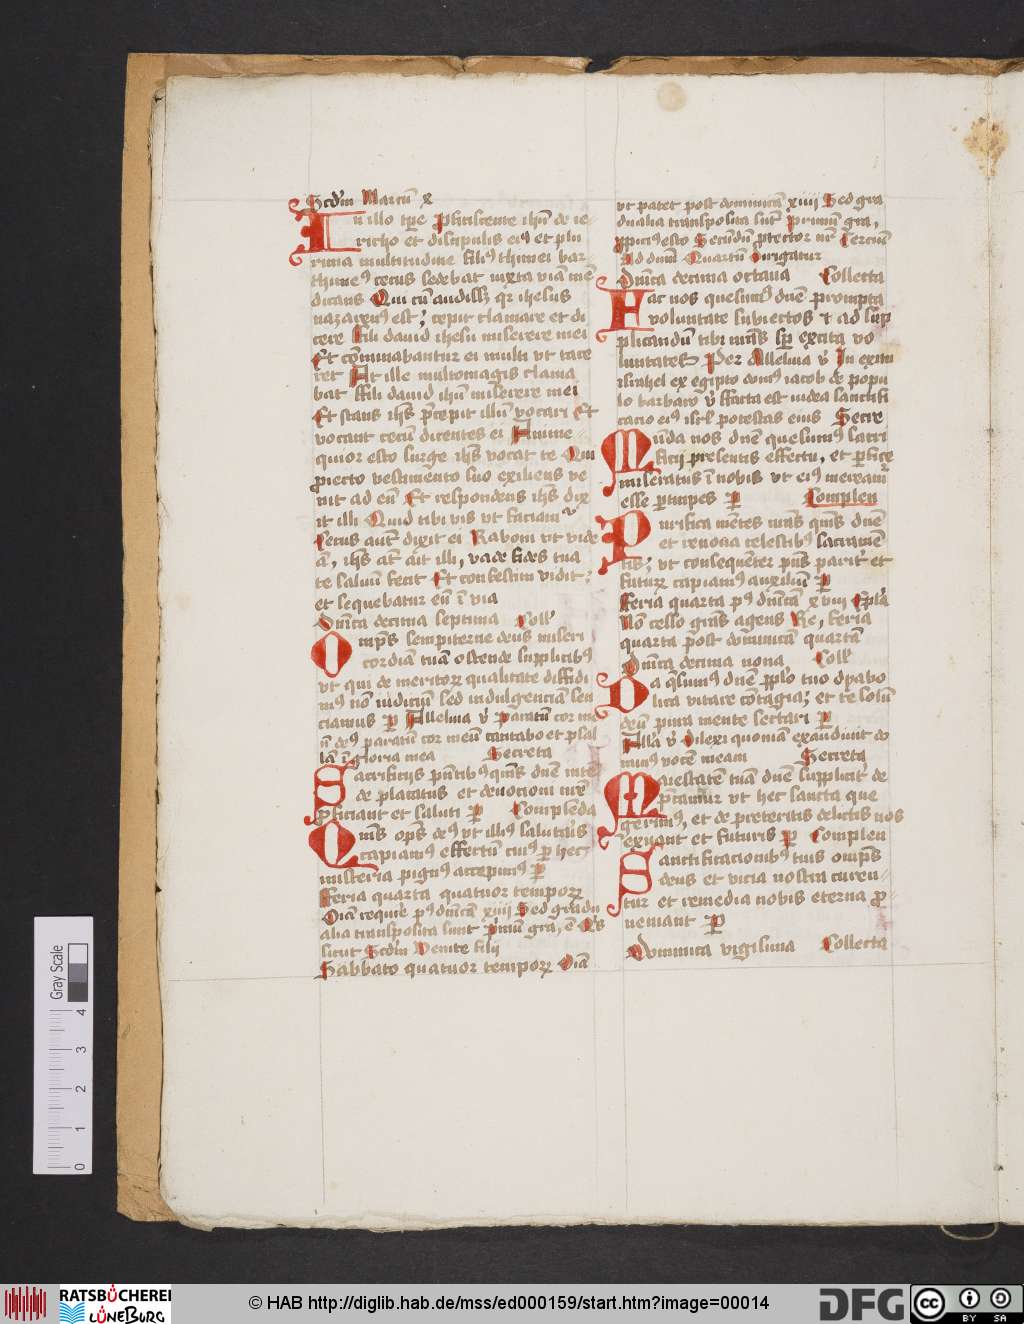 Scdm Marcu x
In illo tpe Pficiscente ihu de ie-
richo et discipulis eius et plu
rima multitudine filius thimei bar-
thimeus cecus sedebat iuxta viam men
dicans Qui cu audissz qr ihesus
nazarenus est; cepit clamare et di
cere Fili david ihesu miserere mei
Et comminabantur ei multi vt tace
ret At ille multomagis clama
bat ffili david ihu miserere mei
Et stans ihs precepit illum vocari Et
vocant cecum dicentes ei Anime-
quior esto surge ihs vocat te Qui
proiecto vestimento suo exiliens ve
nit ad eu Et respondens ihs dix
it illi Quid tibi vis vt faciam
Cecus aut dixit ei Raboni vt vide
am, ihs aut ait illi, vade fides tua
te saluu fecit Et confestim vidit;
et sequebatur eu i via
Dnica decima septima Coll
Omps sempiterne deus miseri
cordiam tuam ostende supplicibus
vt qui de meritorum qualitate diffidi
mus non iudicium sed indulgenciam sen
ciamus P Alleluia v Paratu cor me
u deus paratu cor meu cantabo et psal
lam i gloria mea Secreta
Sacrificiis pntibus qums dne inte
de placatus et deuocioni nre
proficiant et saluti P Complenda
Qums ops deus vt illius salutaris
capiamus effectum cuius per hec
misteria pignus accepimus P
Feria quarta quatuor temporum
Oia require post dnicam xiiii Sed gradu
alia transposita sunt Primu gra, e
sicut Scdm Venite filii
Sabbato quatuor temporum Oia
vt patet post dominicam xiiii Sed gra
dualia transposita sunt Primum gra,
ppicius esto Secundu ptector nr Tercium
Ad dnm Quartu Dirigatur
Dnica decima octaua Collecta
Fac nos quesumus dne prompta
voluntate subiectos et ad sup
plicandu tibi nras sp excita vo
luntates Per Alleluia v In exitu
israhel ex egipto domus iacob de popu
lo barbaro v ffacta est iudea sanctifi
cacio eius isrl potestas eius Secre
Munda nos dne quesumus sacri
ficii presentis effectu, et perfice
miseratus i nobis vt eius mereamur
esse participes P Complen
Purifica mentes nras qums dne
et renoua celestibus sacramen
tis; vt consequenter pns pariter et
futurum capiamus auxiliu P
Feria quarta post dnicam xviii Epla
Non cesso gras agens Re, feria
quarta post dominicam quartam
Dnica decima nona Coll
Da qsumus dne pplo tuo dyabo
lica vitare contagia; et te solum
deum pura mente sectari P
Alla v Dilexi quoniam exaudiuit do
minus vocem meam Secreta
Maiestatem tuam dne suppliciter de
precamur vt hec sancta que
gerimus, et de preteritis delictis nos
exuant et futuris P Complen
Sanctificacionibus tuis omps
deus et vicia nostra curen-
tur et remedia nobis eterna pro-
ueniant P
Dominica vigesima Collecta
Gray Scale
0 1 2 3 4
RATSBÜCHEREI
LÜNEBURG
© HAB http://diglib.hab.de/mss/ed000159/start.htm?image=00014
DFG
cc BY SA